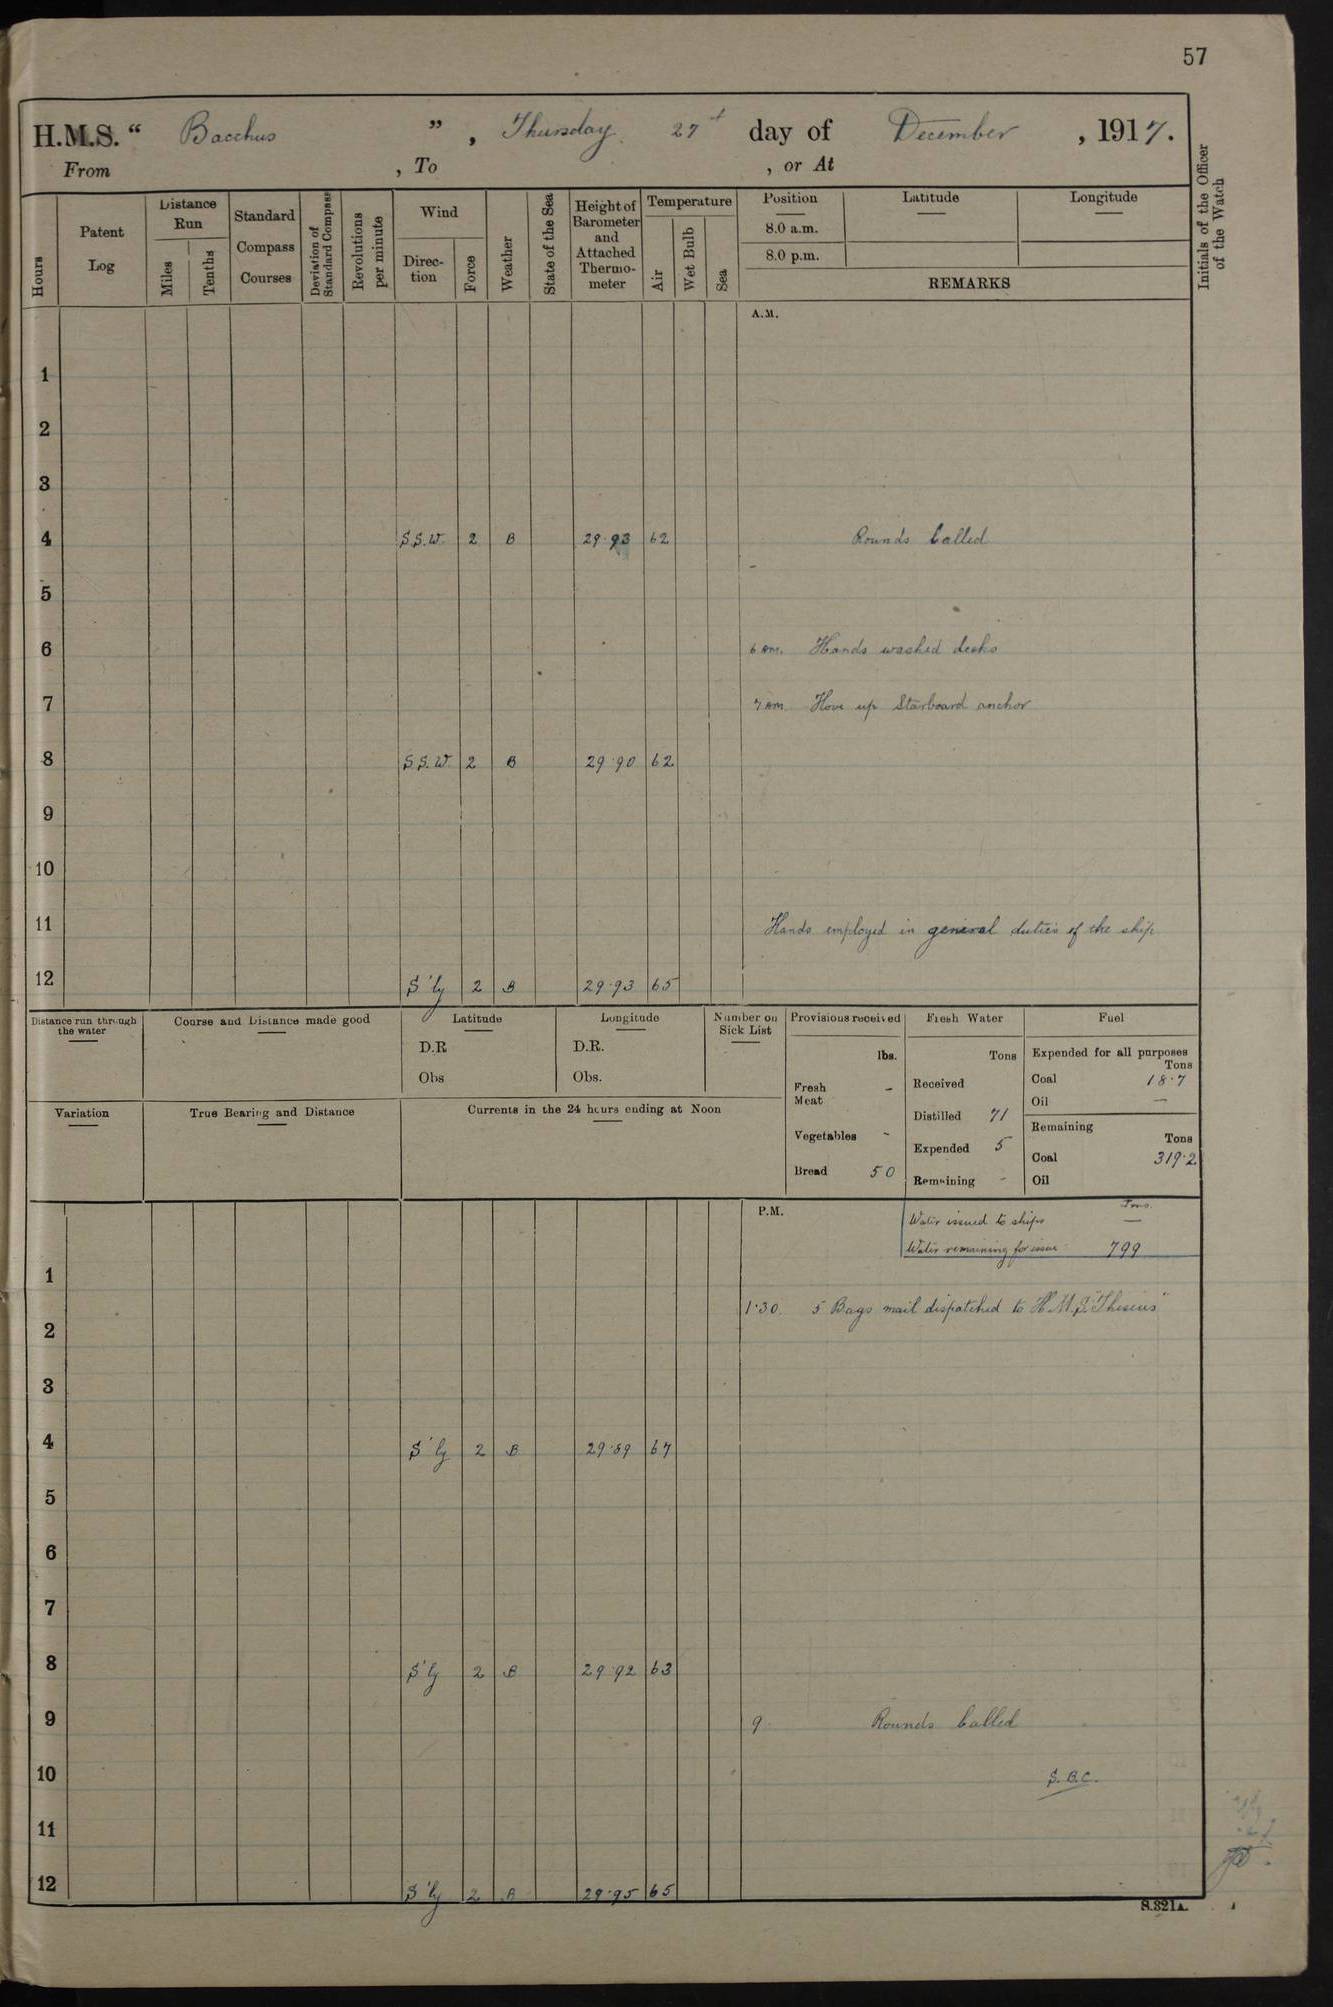 57
H.M.S. “ Bacchus ” , Thursday 27th day of December , 1917.
From , To , or At
Hours
Patent Log
Distance Run
Miles
Tenths
Standard Compass Courses
Deviation of Standard Compass
Revolutions per minute
Wind
Direction
Force
Weather
State of the Sea
Height of Barometer and Attached Thermometer
Temperature
Air
Wet Bulb
Sea
Position
Latitude
Longitude
8.0 a.m.
8.0 p.m.
REMARKS
Initials of the Officer of the Watch
A.M.
1
2
3
4 S.S.W. 2 B 29.93 62 Rounds Called
5
6 6 am. Hands washed decks
7 7 am. Hove up Starboard anchor
8 S.S.W. 2 B 29.90 62
9
10
11 Hands employed in general duties of the ship
12 S'ly 2 B 29.93 65
Distance run through the water
Course and Distance made good
Latitude
D.R
Obs
Longitude
D.R.
Obs.
Number on Sick List
Variation
True Bearing and Distance
Currents in the 24 hours ending at Noon
Provisions received
lbs.
Fresh Meat -
Vegetables -
Bread 50
Fresh Water
Tons
Received
Distilled 71
Expended 5
Remaining -
Fuel
Expended for all purposes
Tons
Coal 18.7
Oil —
Remaining
Tons
Coal 319.2
Oil
P.M.
Tons
Water issued to ships —
Water remaining for issue 799
1
1.30. 5 Bags mail dispatched to H.M.S. "Theseus"
2
3
4 S'ly 2 B 29.89 67
5
6
7
8 S'ly 2 B 29.92 63
9 9. Rounds Called
10 S.B.C.
11
12 S'ly 2 B 29.95 65
S.321A.